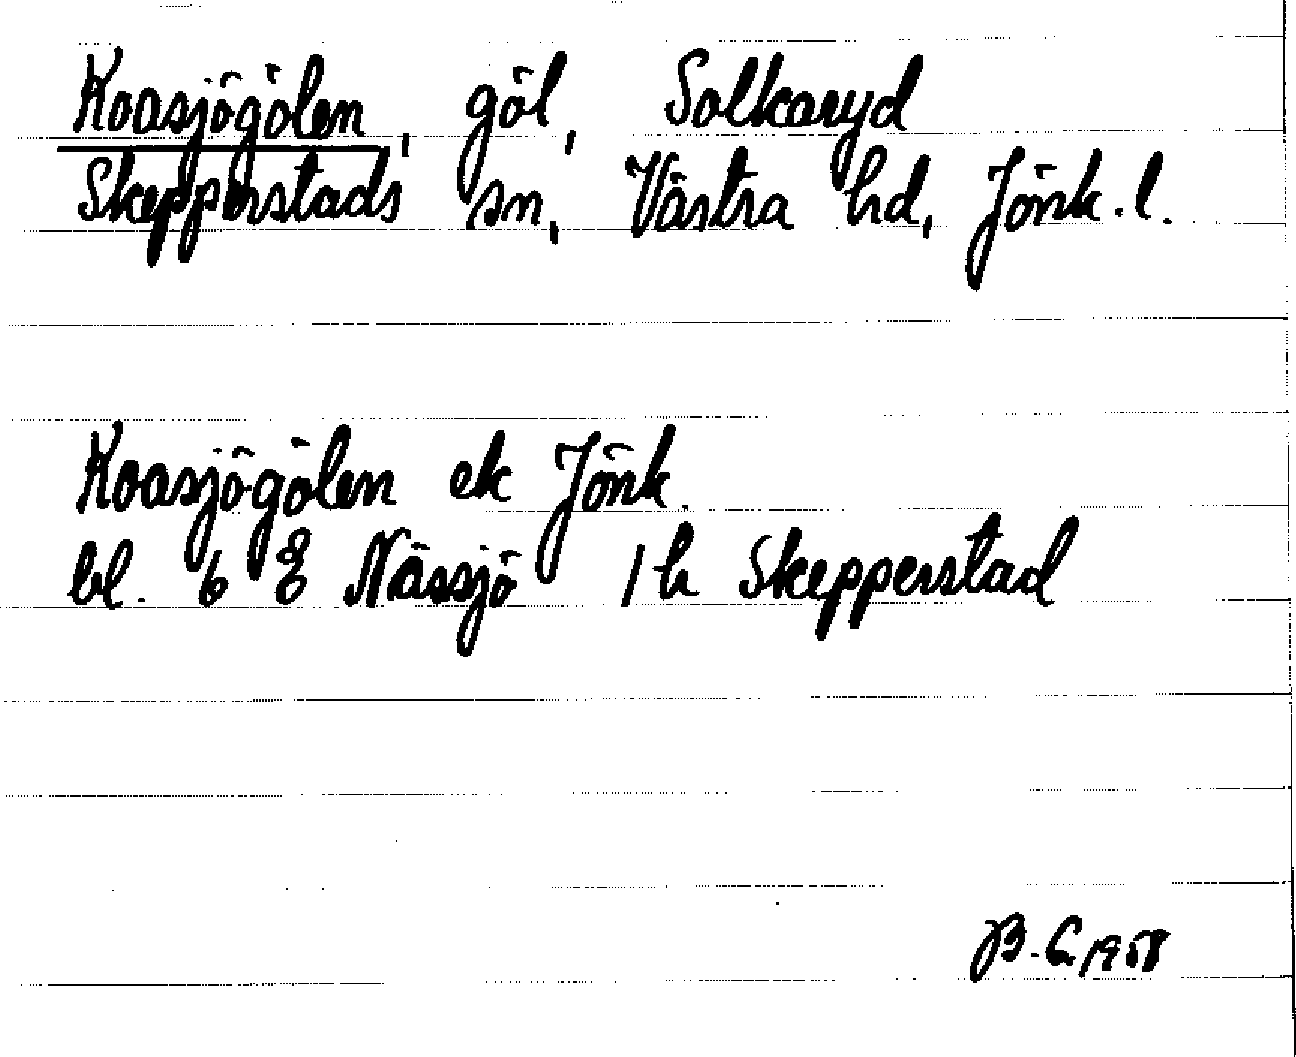 Koasjögölen, göl, Solkaryd
Skepperstads sn, Västra hd, Jönk. l.
Koasjögölen ek Jönk.
bl. 6 E Nässjö 1 h Skepperstad
B. E. 1958